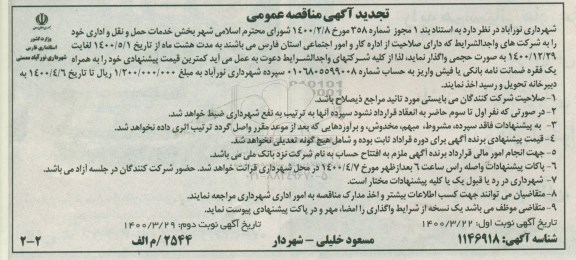 تجدید آگهی مناقصه عمومی
وزارت کشور
استانداری فارس
شهرداری نورآباد ممسنی
شهرداری نورآباد در نظر دارد به استناد بند ۱ مجوز شماره ۳۵۸ مورخ ۱۴۰۰/۲/۸ شورای محترم اسلامی شهر بخش خدمات حمل و نقل و اداری خود
را به شرکت های واجدالشرایط که دارای صلاحیت از اداره کار و امور اجتماعی استان فارس می باشند به مدت هشت ماه از تاریخ ۱۴۰۰/۵/۱ لغایت
۱۴۰۰/۱۲/۲۹ به صورت حجمی واگذار نماید، لذا از کلیه شرکتهای واجدالشرایط دعوت به عمل می آید کمترین قیمت پیشنهادی خود را به همراه
یک فقره ضمانت نامه بانکی یا فیش واریز به حساب شماره ۰۱۰۶۸۰۵۵۹۹۰۰۸ سپرده شهرداری نورآباد به مبلغ ۱/۲۰۰/۰۰۰/۰۰۰ ریال تا تاریخ ۱۴۰۰/۴/۶ به
دبیرخانه تحویل و رسید اخذ نمایند.
۱- صلاحیت شرکت کنندگان می بایستی مورد تائید مراجع ذیصلاح باشد.
۲- در صورتی که نفر اول تا سوم حاضر به انعقاد قرارداد نشود سپرده آنها به ترتیب به نفع شهرداری ضبط خواهد شد.
۳- به پیشنهادات فاقد سپرده، مشروط، مبهم، مخدوش، و برآوردهایی که بعد از موعد مقرر واصل گردد ترتیب اثری داده نخواهد شد.
۴- قیمت پیشنهادی برنده آگهی برای دوره قراداد ثابت بوده و شامل هیچ گونه تعدیلی نخواهد شد.
۵- جهت انجام امور مالی قرارداد برنده آگهی ملزم به افتتاح حساب به نام شرکت نزد بانک ملی می باشد.
۶- پاکات پیشنهادات واصله راس ساعت ۶ بعدازظهر مورخ ۱۴۰۰/۴/۷ در محل شهرداری قرائت خواهد شد. حضور شرکت کنندگان در جلسه آزاد می باشد.
۷- شهرداری در رد یا قبول یک یا کلیه پیشنهادات مختار است.
۸- متقاضیان می توانند جهت کسب اطلاعات بیشتر و اخذ مدارک مناقصه به امور اداری شهرداری مراجعه نمایند.
۹- متقاضی موظف می باشد یک نسخه از شرایط واگذاری را امضا، مهر و در پاکت پیشنهادی پیوست نماید.
تاریخ آگهی نوبت اول: ۱۴۰۰/۳/۲۲ تاریخ آگهی نوبت دوم: ۱۴۰۰/۳/۲۹
شناسه آگهی: ۱۱۴۶۹۱۸ مسعود خلیلی - شهردار ۲۵۴۴/م الف ۲-۲